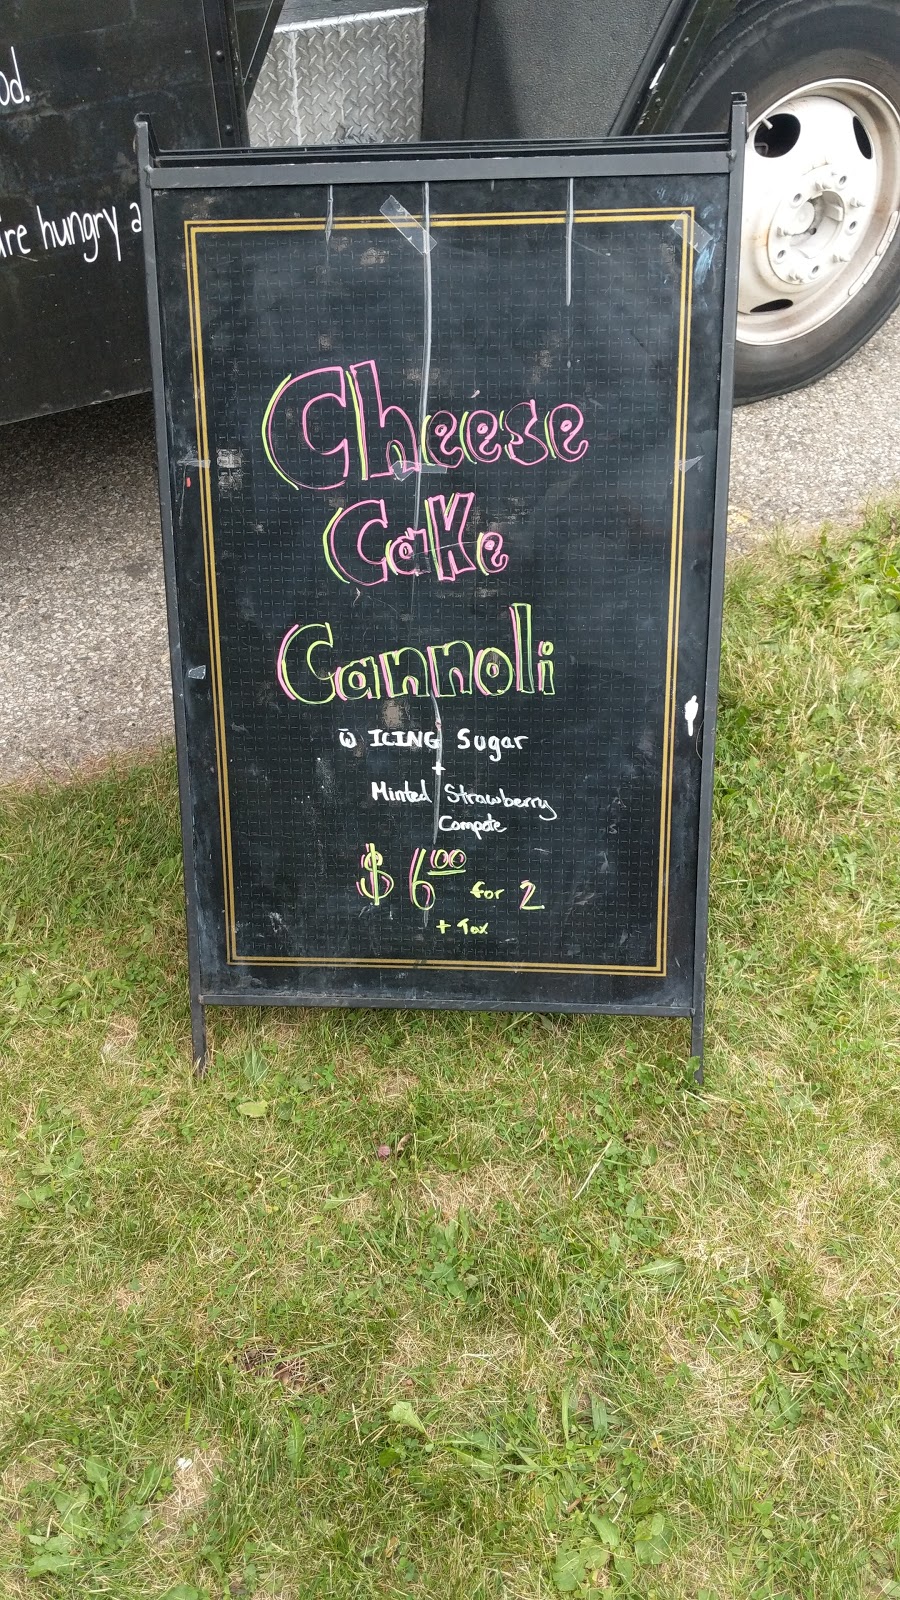 od.
're hungry a
Cheese
Cake
Cannoli
w̄ ICING Sugar
+
Minted Strawberry
Compote
$6.00 for 2
+ Tax